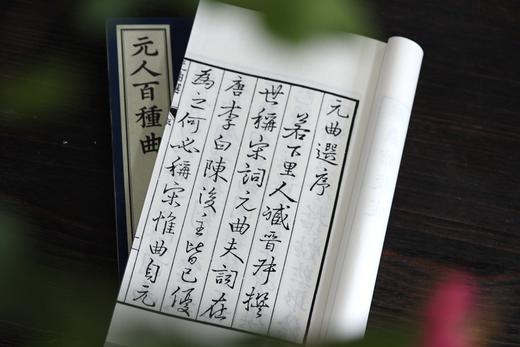 元曲選序
若下里人臧晉叔撰
世稱宋詞元曲夫詞在
唐李白陳後主皆已優
為之何必稱宋惟曲自元
元人百種曲